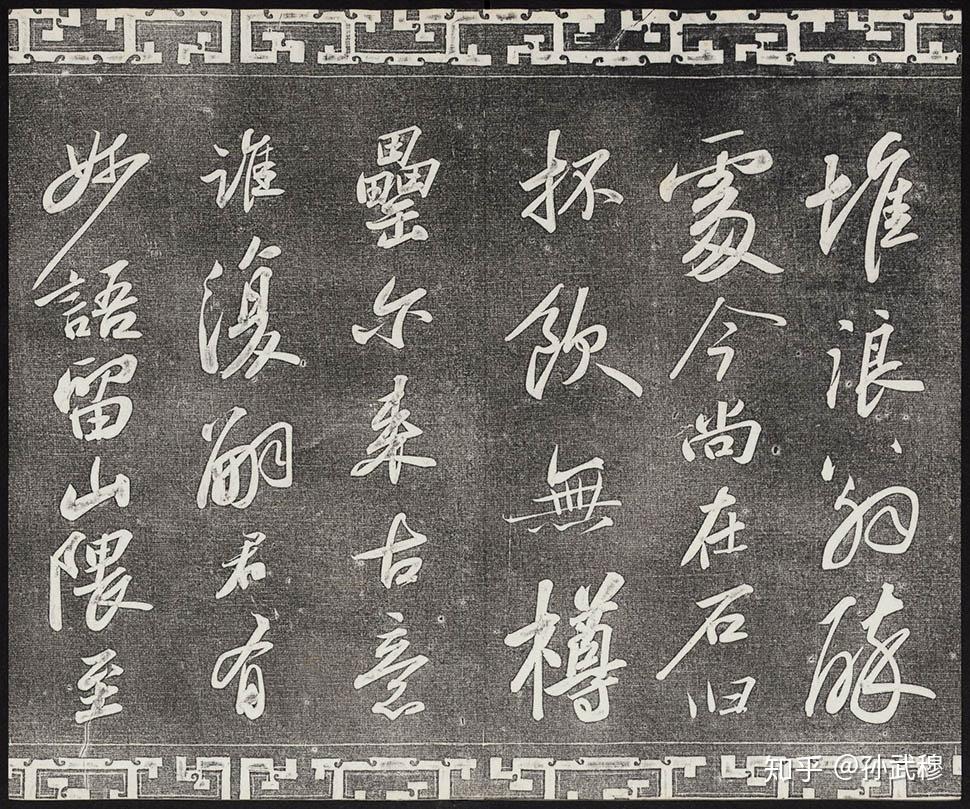 堆浪翁醉
處今尚在石臼
抔飲無樽
罍尔来古意
誰復嗣君有
妙語留山隈至
知乎 @孙武穆